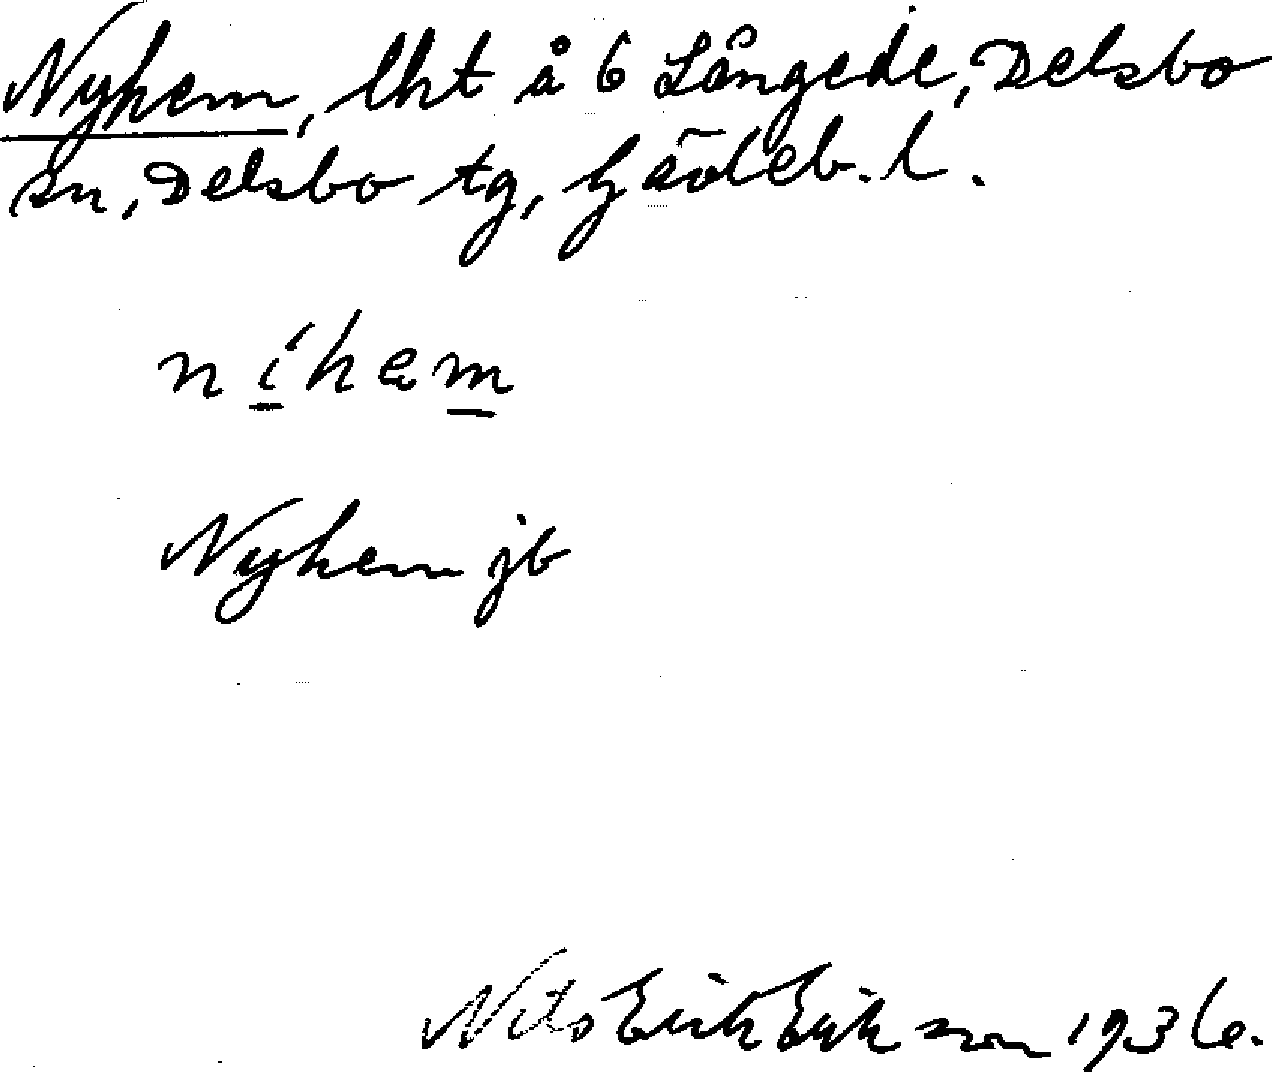 Nyhem, lht å 6 Långede, Delsbo
sn, Delsbo tg, Gävleb. l.
níhem
Nyhem jb
Nils Erik Eriksson 1936.